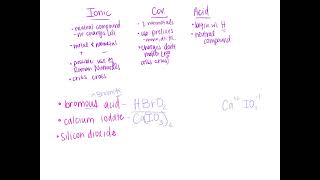 Ionic
• neutral compound
no charges left
• metal & nonmetal
+ -
• possible use of
Roman Numerals
• criss cross
Cov.
• 2 nonmetals
• use prefixes
mono, di, tri
• charges don't
matter (no
criss cross)
Acid
• begin w/ H
• neutral
compound
• bromous acid - HBrO2
• calcium iodate - Ca(IO3)2
• silicon dioxide
Ca+2 IO3-1